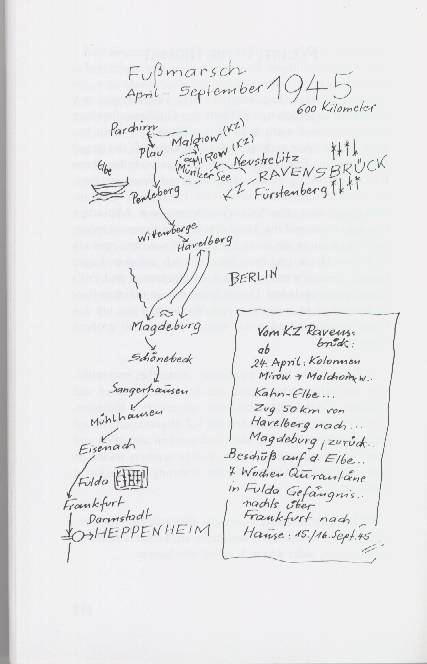 Fußmarsch
April - September 1945
600 Kilometer
Parchim
Malchow (KZ)
Plau
Mirow (KZ)
Elbe
Müritzer See
Neustrelitz
KZ - RAVENSBRÜCK
Perleberg
Fürstenberg
Wittenberge
Havelberg
BERLIN
Magdeburg
Schönebeck
Sangerhausen
Mühlhausen
Eisenach
Fulda
Frankfurt
Darmstadt
HEPPENHEIM
Vom KZ Ravens-
brück:
ab
24. April: Kolonnen
Mirow → Malchow..
Kahn-Elbe...
Zug 50 km von
Havelberg nach...
Magdeburg, zurück..
Beschuß auf d. Elbe..
7 Wochen Quarantäne
in Fulda Gefängnis..
nachts über
Frankfurt nach
Hause: 15./16. Sept. 45